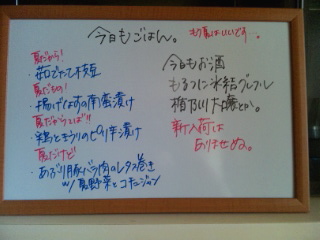 今日もごはん。
もう夏はいいです…。
夏だから!
・茹でたて枝豆
夏だもの!
・揚げはすの南蛮漬け
夏だからっぱり
・鶏ときうりのピリ辛漬け
夏だけど
・あぶり豚バラ肉のレタス巻き
w/夏野菜とコチュジャン
今日もお酒
もるつに氷結グレフル
楯乃川大
とか。
新入荷は
ありませぬ。